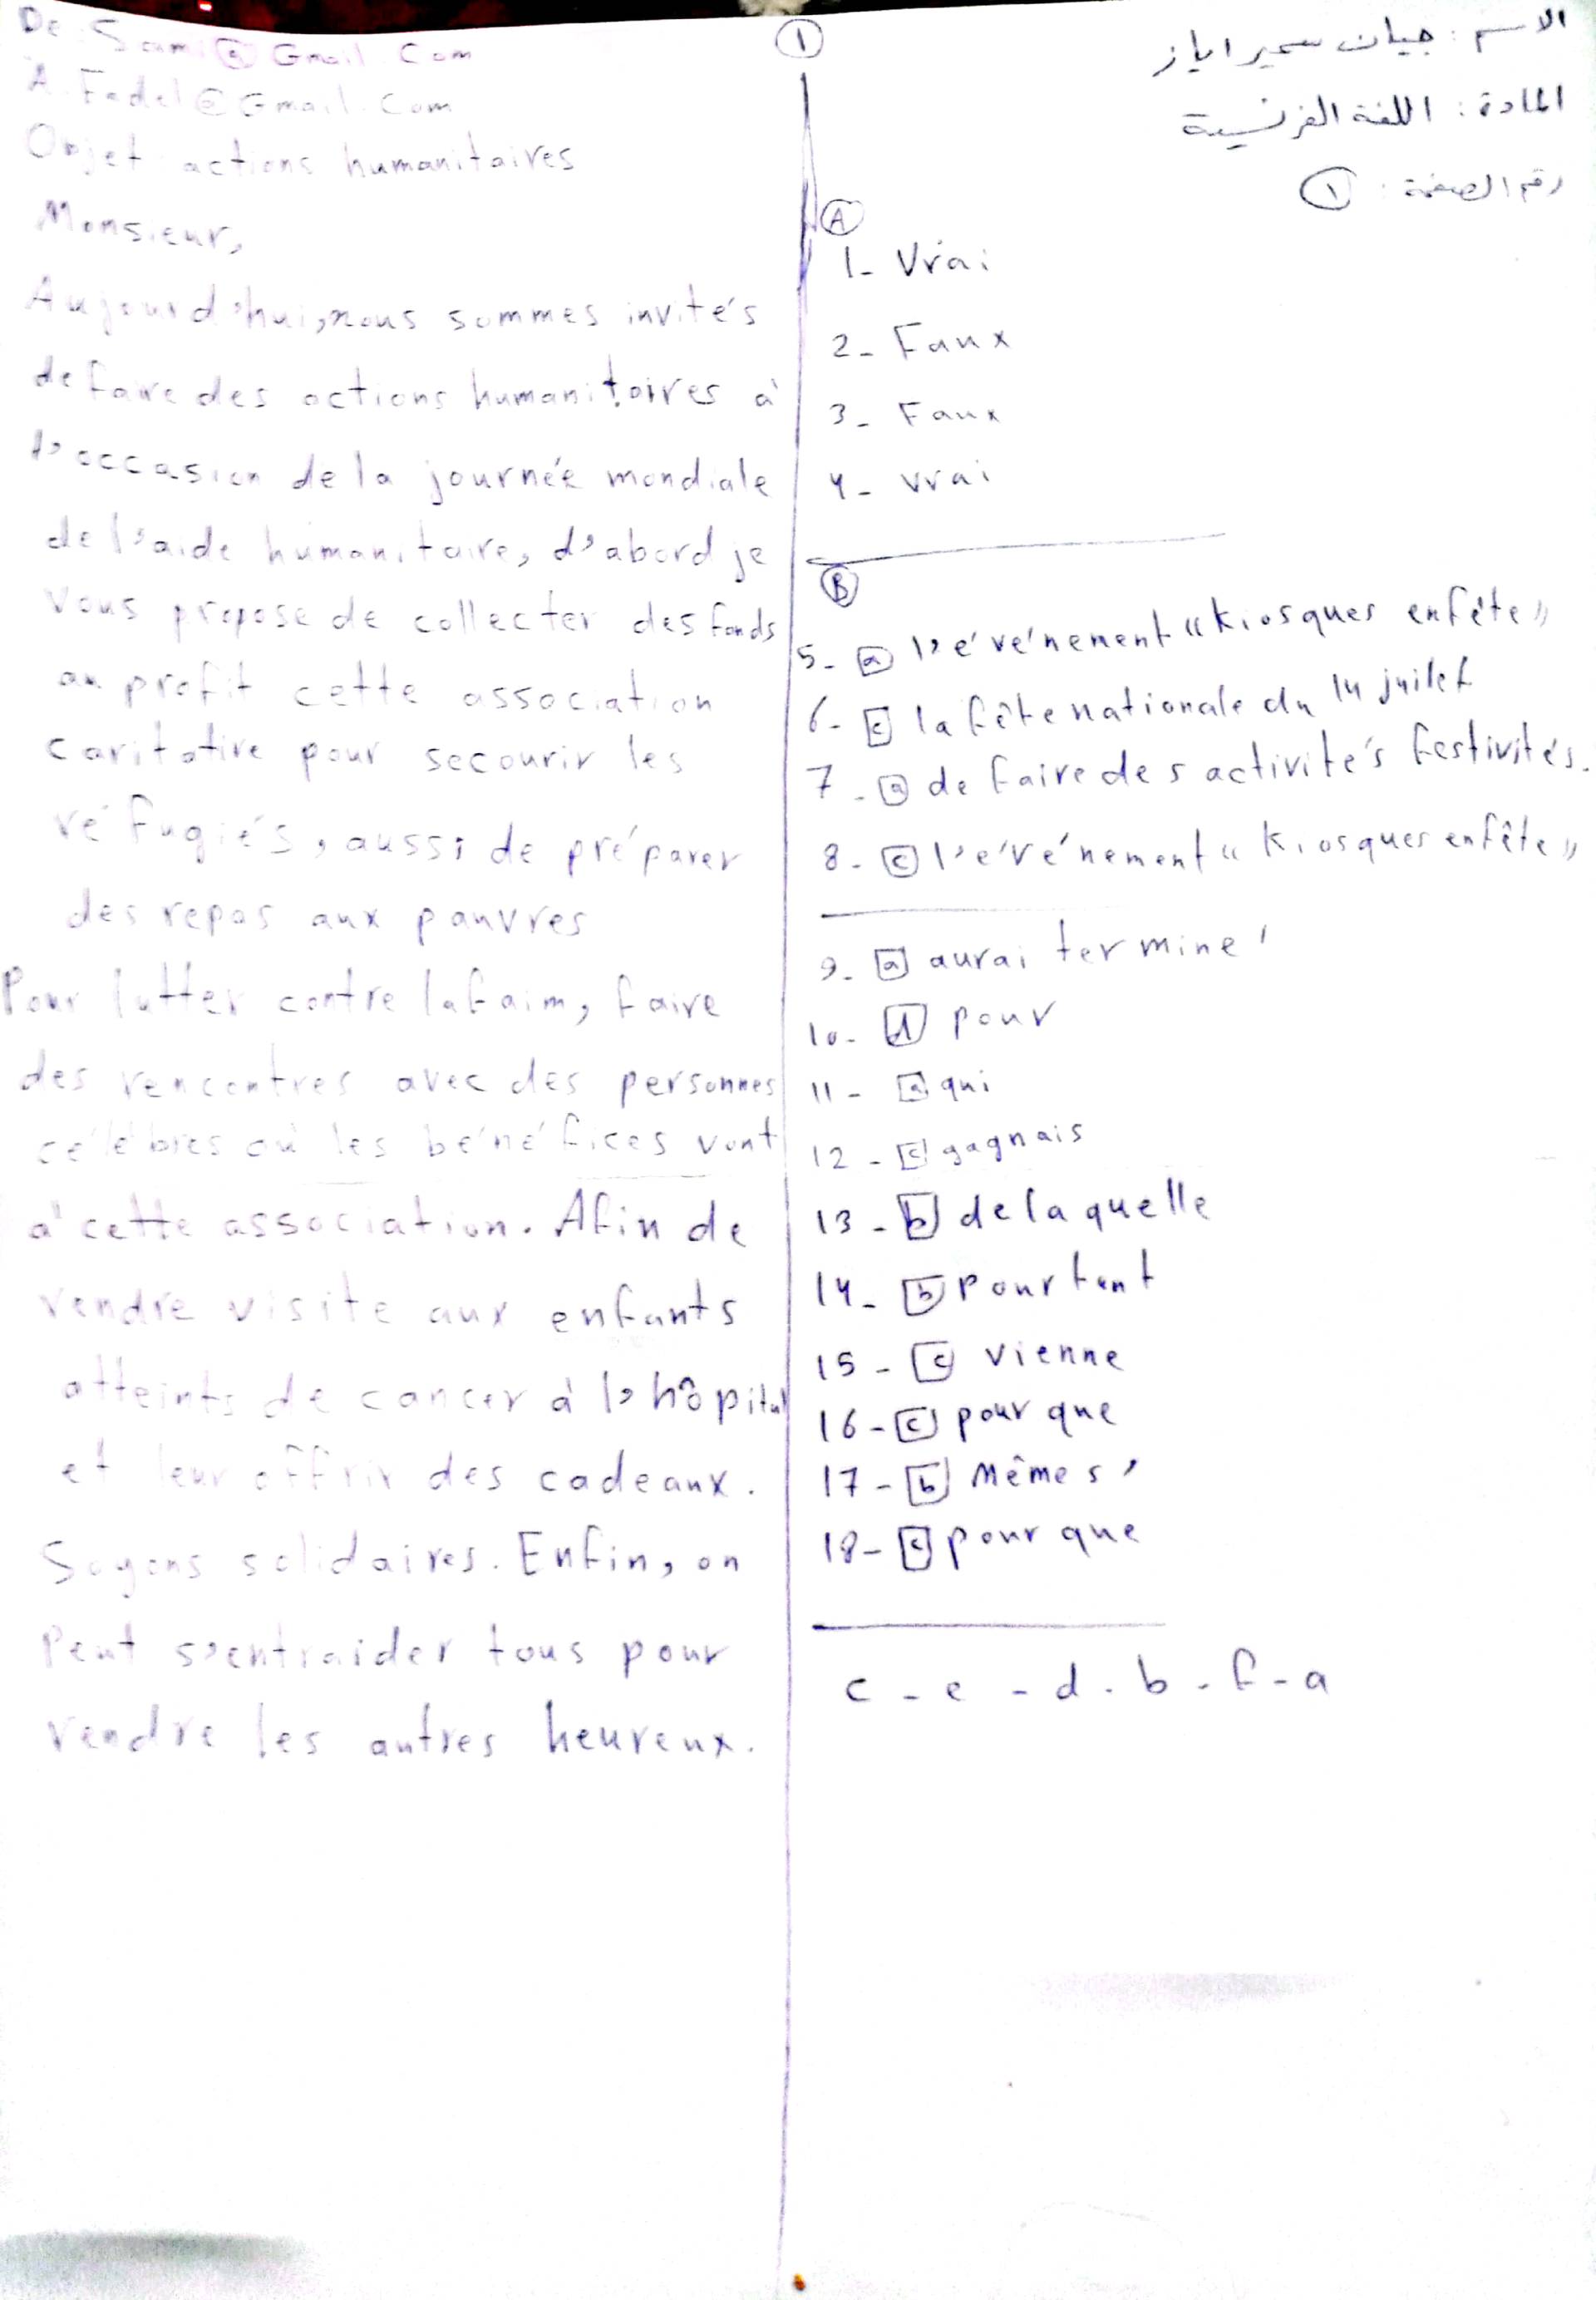 الاسم : جيان سمير اياز
المادة : اللغة الفرنسية
رقم الصفحة : ١
1
A
1- Vrai
2- Faux
3- Faux
4- vrai
B
5- a l'événement «kiosques enfête»
6- c la fête nationale du 14 juilet
7- a de faire des activités festivités.
8- c l'événement « Kiosques enfête»
9- a aurai terminé
10- d pour
11- a qui
12- c gagnais
13- b de laquelle
14- b pourtant
15- c vienne
16- c pour que
17- b Même s'
18- c pour que
c - e - d - b - f - a
De: Sami@Gmail.Com
A. Fadel@Gmail.Com
Objet actions humanitaires
Monsieur,
Aujourd'hui, nous sommes invités
de faire des actions humanitaires à
l'occasion de la journée mondiale
de l'aide humanitaire, d'abord je
vous propose de collecter des fonds
au profit cette association
caritative pour secourir les
réfugiés, aussi de préparer
des repas aux pauvres
Pour lutter contre la faim, faire
des rencontres avec des personnes
célèbres où les bénéfices vont
à cette association. Afin de
rendre visite aux enfants
atteints de cancer à l'hôpital
et leur offrir des cadeaux.
Soyons solidaires. Enfin, on
Peut s'entraider tous pour
rendre les autres heureux.